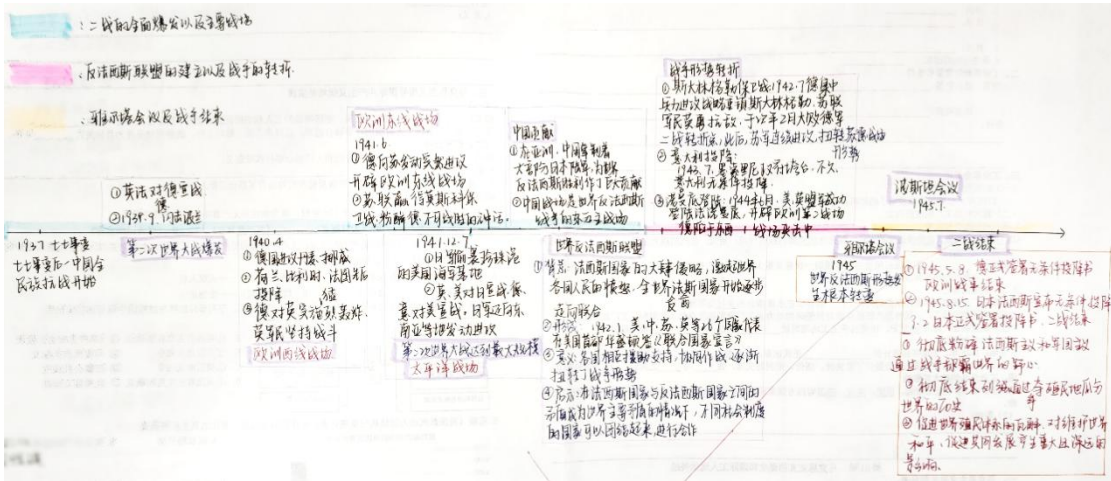 :二战的全面爆发以及主要战场
:反法西斯联盟的建立以及战争的转折.
:雅尔塔会议及战争结束
①英法对德宣战
德
②1939.9.闪击波兰
1937 七七事变
七七事变后-中国全
民族抗战开始
第二次世界大战爆发
欧洲东线战场
1941.6
①德向苏发动突袭进攻
开辟欧洲东线战场
②苏联赢得莫斯科保
卫战,粉碎德不可战胜的神话。
1940.4
①德国进攻丹麦、挪威
②荷兰、比利时、法国先后
投降
③德对英实施狂轰滥炸
英张坚持战斗
欧洲西线战场
1941.12.7
①日偷袭珍珠港
的美国海军基地
②英、美对日宣战,德、
意对美宣战,日军还向东
南亚等地发动进攻
第二次世界大战达到最大规模
太平洋战场
中国贡献
①在亚洲,中国牵制着
大部分日本陆军,为世界
反法西斯胜利作了巨大贡献
②中国战场是世界反法西斯
战争的东方主战场
世界反法西斯联盟
①背景:法西斯国家的大肆侵略,激起世界
各国人民的愤怒,全世界反法斯国家开始逐步
走向联合
②形成:1942.1.美、中、苏、英等26个国家代表
在美国首都华盛顿签《联合国家宣言》
发商
③意义:各国相互援助支持,协同作战,逐渐
扭转了战争形势
④启示:当法西斯国家与反法西斯国家之间的
矛盾成为世界主要矛盾的情况下,不同社会制度
的国家可以团结起来,进行合作
战争形势转折
①斯大林格勒保卫战:1942.7德集中
兵力进攻战略重镇斯大林格勒,苏联
军民英勇抗敌,于43年2月大败德军
二战转折点,此后,苏军连续进攻,扭转苏德战场
形势
②意大利投降:
1943.7.墨索里尼政府垮台,不久,
意大利无条件投降.
③诺曼底登陆:1944年6月.美、英盟军成功
登陆法诺曼底,开辟欧洲第二战场
德陷于东西战场夹击中
雅尔塔会议
1945
世界反法西斯形势发
生根本转变
波斯坦会议
1945.7.
二战结束
①1945.5.8.德正式签署无条件投降书
欧洲战事结束
②1945.8.15.日本法西斯宣布无条件投降
9.2日本正式签署投降书,二战结束
③彻底粉碎法西斯主义和军国主义
通过战争称霸世界的野心
④彻底结束列强通过争夺殖民地瓜分
世界的历史
⑤促进世界殖民体系的瓦解,对维护世界
和平、促进共同发展产生重大且深远的
影响.